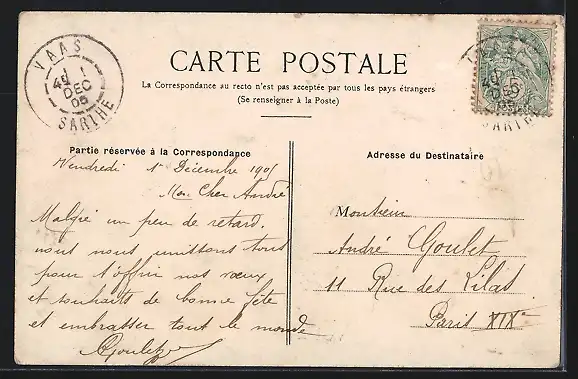 VAAS
4 1
DEC
05
SARTHE
CARTE POSTALE
La Correspondance au recto n'est pas acceptée par tous les pays étrangers
(Se renseigner à la Poste)
Partie réservée à la Correspondance
Vendredi 1r Décembre 1905
Mon Cher André
Malgré un peu de retard,
nous nous unissons tous
pour t'offrir nos vœux
et souhaits de bonne fête
et embrasser tout le monde
Goulet
Adresse du Destinataire
Monsieur
André Goulet
11 Rue des Lilas
Paris XIXe
DEC
05
SARTHE
5